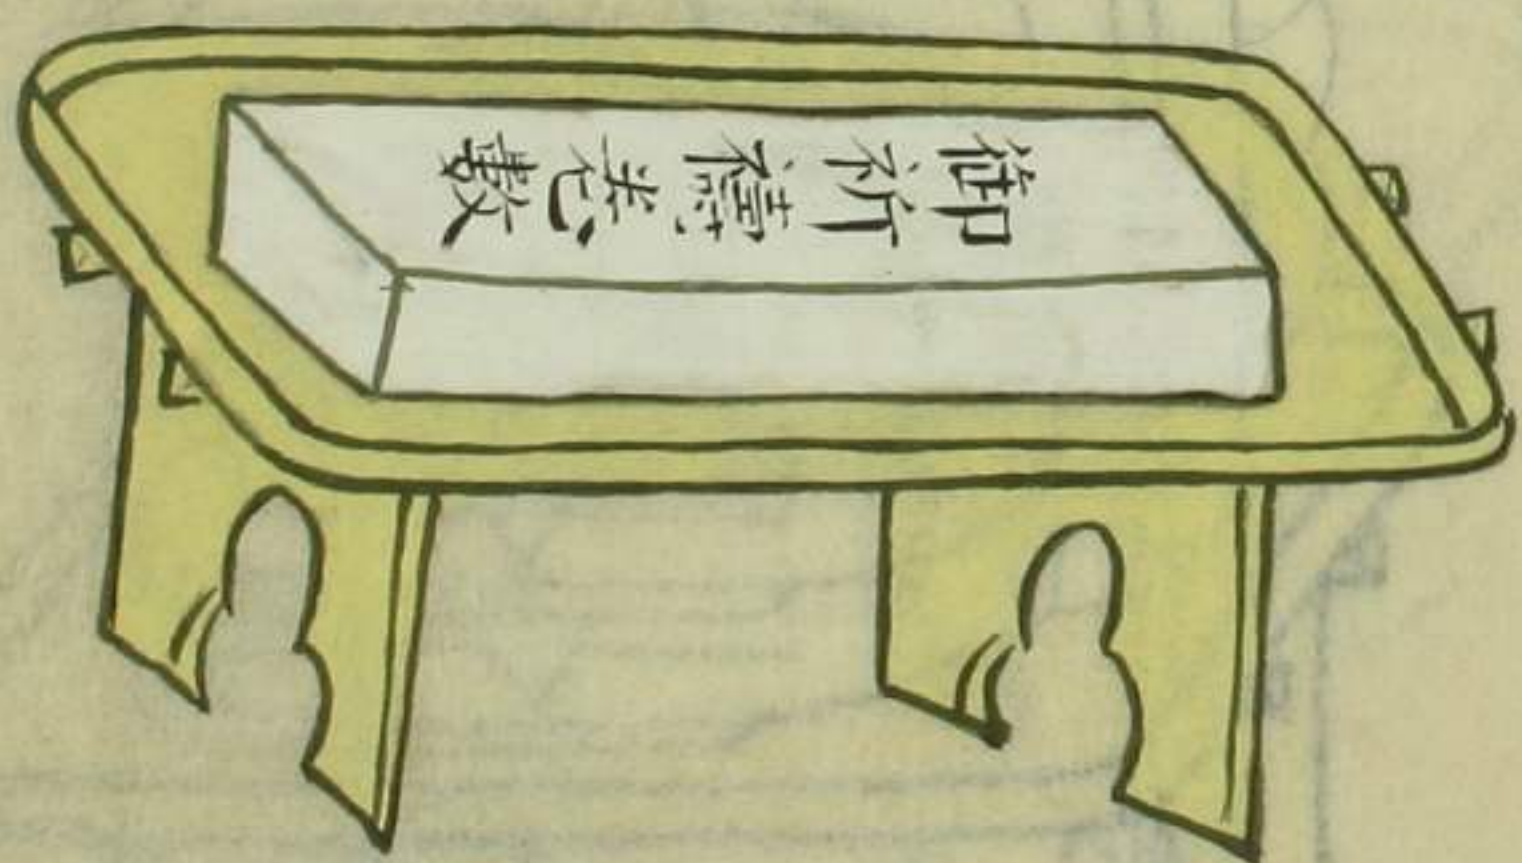 御祈禱卷數